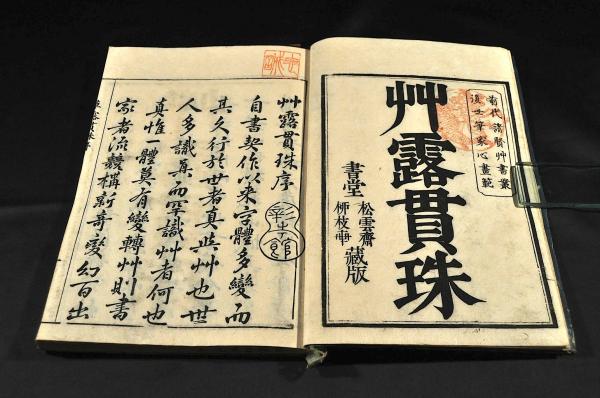 前代諸賢艸書叢
筆家心畫範
艸露貫珠
書堂
松雲齋
柳枝軒
藏版
艸露貫珠序
自書契作以來字體多變而
其久行於世者真與艸也世
人多識真而罕識艸者何也
真惟一體莫有變轉艸則書
家者流競構新奇變幻百出
彰考館